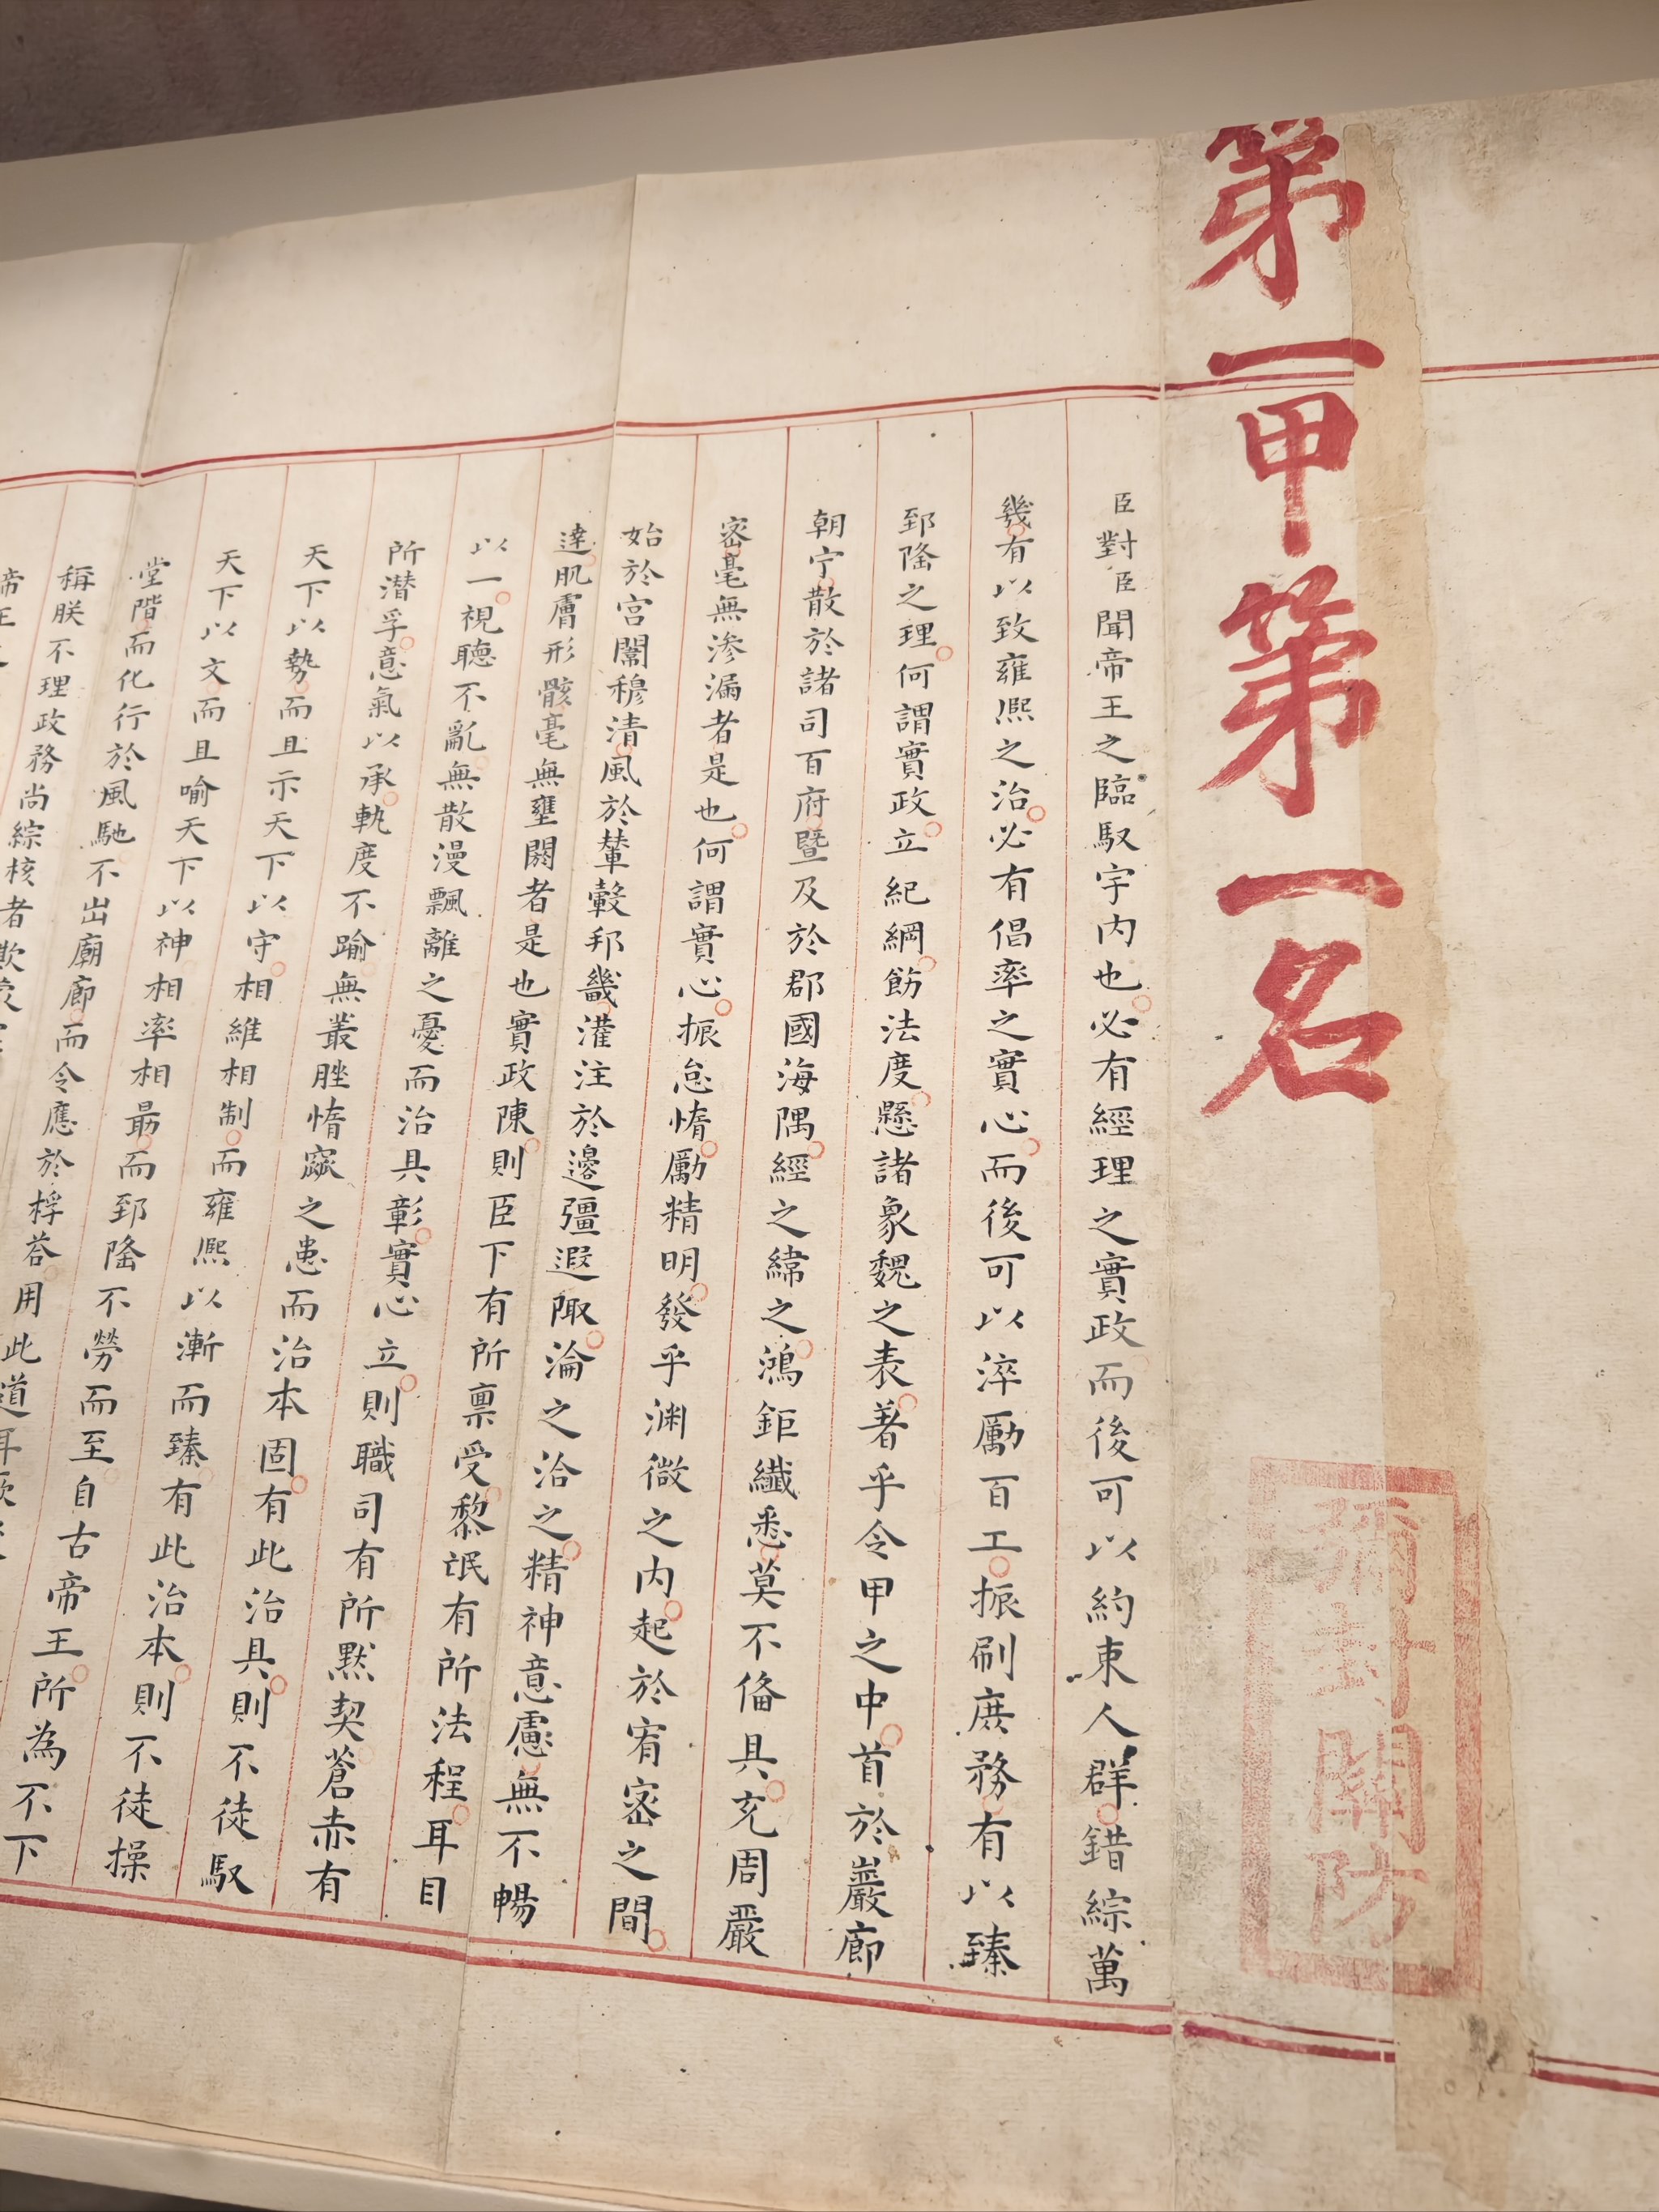 第一甲第一名
彌封關防
臣對臣聞帝王之臨馭宇内也必有經理之實政而後可以約束人群錯綜萬
幾有以致雍熙之治必有倡率之實心而後可以淬勵百工振刷庶務有以臻
郅隆之理何謂實政立紀綱飭法度懸諸象魏之表著乎令甲之中首於巖廊
朝宁散於諸司百府暨及於郡國海隅經之緯之鴻鉅纖悉莫不備具充周嚴
密毫無滲漏者是也何謂實心振怠惰勵精明發乎淵微之内起於宥密之間
始於宫闈穆清風於輦轂邦畿灌注於邊疆遐陬淪之洽之精神意慮無不暢
達肌膚形骸毫無壅閼者是也實政陳則臣下有所禀受黎氓有所法程耳目
以一視聽不亂無散漫飄離之憂而治具彰實心立則職司有所默契蒼赤有
所潜孚意氣以承軌度不踰無叢脞惰窳之患而治本固有此治具則不徒馭
天下以勢而且示天下以守相維相制而雍熙以漸而臻有此治本則不徒操
天下以文而且喻天下以神相率相最而郅隆不勞而至自古帝王所為不下
堂階而化行於風馳不出廟廊而令應於桴荅用此道耳
稱朕不理政務尚綜核者欺
帝王